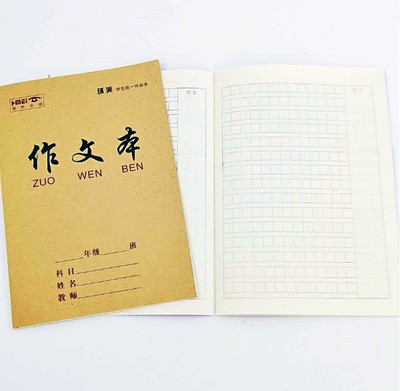 环美 学生统一作业本
作文本
ZUO WEN BEN
年级 班
科目
姓名
教师